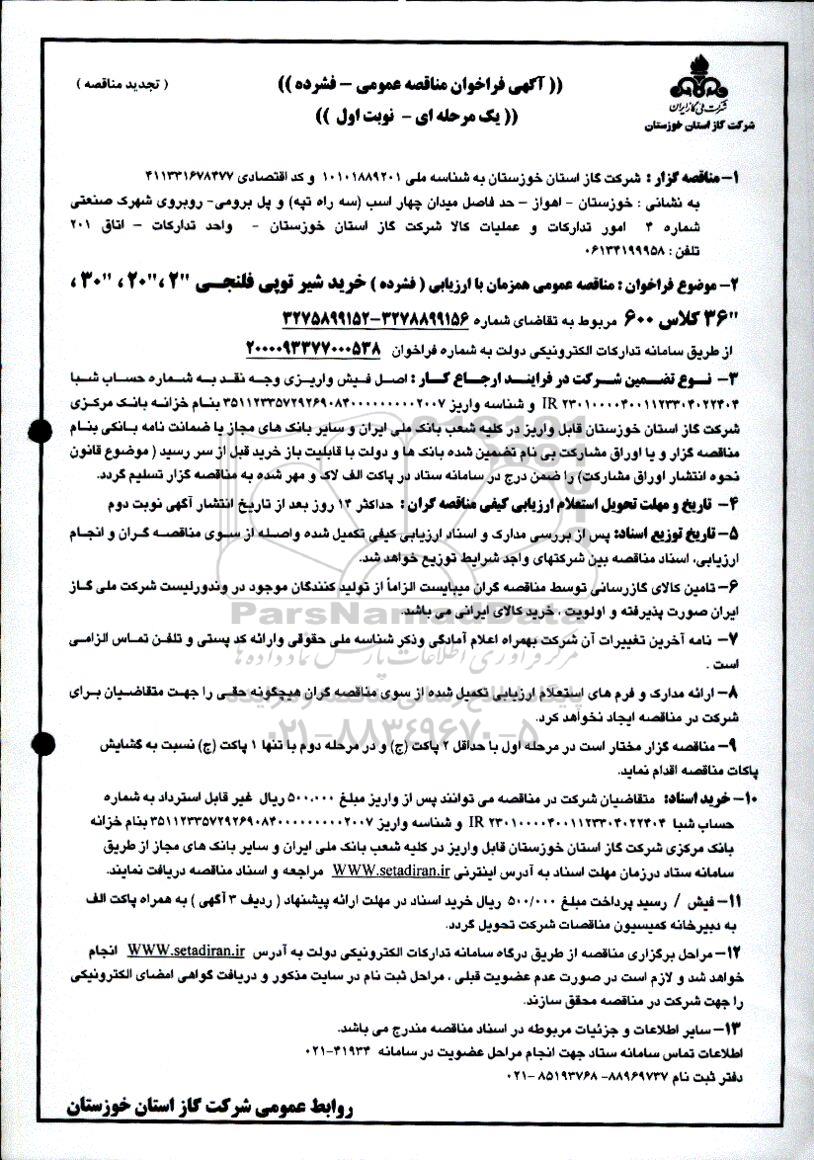 (( آگهی فراخوان مناقصه عمومی – فشرده ))
( تجدید مناقصه )
(( یک مرحله ای - نوبت اول ))
شرکت ملی گاز ایران
شرکت گاز استان خوزستان
۱– مناقصه گزار : شرکت گاز استان خوزستان به شناسه ملی ۱۰۱۰۱۸۸۹۲۰۱ و کد اقتصادی ۴۱۱۳۳۱۶۷۸۴۷۷
به نشانی : خوزستان - اهواز – حد فاصل میدان چهار اسب (سه راه تپه) و پل برومی- روبروی شهرک صنعتی
شماره ۴ امور تدارکات و عملیات کالا شرکت گاز استان خوزستان - واحد تدارکات – اتاق ۲۰۱
تلفن : ۰۶۱۳۴۱۹۹۹۵۸
۲– موضوع فراخوان : مناقصه عمومی همزمان با ارزیابی ( فشرده ) خرید شیر توپی فلنجی "۲ ،"۲۰ ، "۳۰ ،
"۳۶ کلاس ۶۰۰ مربوط به تقاضای شماره ۳۲۷۸۸۹۹۱۵۶-۳۲۷۵۸۹۹۱۵۲
از طریق سامانه تدارکات الکترونیکی دولت به شماره فراخوان ۲۰۰۰۰۹۳۳۷۷۰۰۰۵۳۸
۳– نوع تضمین شرکت در فرایند ارجاع کار : اصل فیش واریزی وجه نقد به شماره حساب شبا
IR ۲۳۰۱۰۰۰۰۴۰۰۱۱۲۳۳۰۴۰۲۲۴۰۴ و شناسه واریز ۳۵۱۱۲۳۳۵۷۲۹۲۶۹۰۸۴۰۰۰۰۰۰۰۰۰۰۲۰۰۷ بنام خزانه بانک مرکزی
شرکت گاز استان خوزستان قابل واریز در کلیه شعب بانک ملی ایران و سایر بانک های مجاز یا ضمانت نامه بانکی بنام
مناقصه گزار و یا اوراق مشارکت بی نام تضمین شده بانک ها و دولت با قابلیت باز خرید قبل از سر رسید ( موضوع قانون
نحوه انتشار اوراق مشارکت) را ضمن درج در سامانه ستاد در پاکت الف لاک و مهر شده به مناقصه گزار تسلیم گردد.
۴– تاریخ و مهلت تحویل استعلام ارزیابی کیفی مناقصه گران : حداکثر ۱۴ روز بعد از تاریخ انتشار آگهی نوبت دوم
۵– تاریخ توزیع اسناد: پس از بررسی مدارک و اسناد ارزیابی کیفی تکمیل شده واصله از سوی مناقصه گران و انجام
ارزیابی، اسناد مناقصه بین شرکتهای واجد شرایط توزیع خواهد شد.
۶– تامین کالای گازرسانی توسط مناقصه گران میبایست الزاماً از تولید کنندگان موجود در وندورلیست شرکت ملی گاز
ایران صورت پذیرفته و اولویت ، خرید کالای ایرانی می باشد.
ParsNamadData
۷– نامه آخرین تغییرات آن شرکت بهمراه اعلام آمادگی وذکر شناسه ملی حقوقی وارائه کد پستی و تلفن تماس الزامی
است .
مرکز فرآوری اطلاعات پارس نماد داده ها
۸– ارائه مدارک و فرم های استعلام ارزیابی تکمیل شده از سوی مناقصه گران هیچگونه حقی را جهت متقاضیان برای
شرکت در مناقصه ایجاد نخواهد کرد.
۰۲۱-۸۸۳۴۹۶۷۰-۵
۹– مناقصه گزار مختار است در مرحله اول با حداقل ۲ پاکت (ج) و در مرحله دوم با تنها ۱ پاکت (ج) نسبت به گشایش
پاکات مناقصه اقدام نماید.
۱۰– خرید اسناد: متقاضیان شرکت در مناقصه می توانند پس از واریز مبلغ ۵۰۰،۰۰۰ ریال غیر قابل استرداد به شماره
حساب شبا IR ۲۳۰۱۰۰۰۰۴۰۰۱۱۲۳۳۰۴۰۲۲۴۰۴ و شناسه واریز ۳۵۱۱۲۳۳۵۷۲۹۲۶۹۰۸۴۰۰۰۰۰۰۰۰۰۰۲۰۰۷ بنام خزانه
بانک مرکزی شرکت گاز استان خوزستان قابل واریز در کلیه شعب بانک ملی ایران و سایر بانک های مجاز از طریق
سامانه ستاد درزمان مهلت اسناد به آدرس اینترنتی WWW.setadiran.ir مراجعه و اسناد مناقصه دریافت نمایند.
۱۱– فیش / رسید پرداخت مبلغ ۵۰۰/۰۰۰ ریال خرید اسناد در مهلت ارائه پیشنهاد ( ردیف ۳ آگهی ) به همراه پاکت الف
به دبیرخانه کمیسیون مناقصات شرکت تحویل گردد.
۱۲– مراحل برگزاری مناقصه از طریق درگاه سامانه تدارکات الکترونیکی دولت به آدرس WWW.setadiran.ir انجام
خواهد شد و لازم است در صورت عدم عضویت قبلی ، مراحل ثبت نام در سایت مذکور و دریافت گواهی امضای الکترونیکی
را جهت شرکت در مناقصه محقق سازند.
۱۳– سایر اطلاعات و جزئیات مربوطه در اسناد مناقصه مندرج می باشد.
اطلاعات تماس سامانه ستاد جهت انجام مراحل عضویت در سامانه ۴۱۹۳۴-۰۲۱
دفتر ثبت نام ۸۸۹۶۹۷۳۷- ۸۵۱۹۳۷۶۸ -۰۲۱
روابط عمومی شرکت گاز استان خوزستان